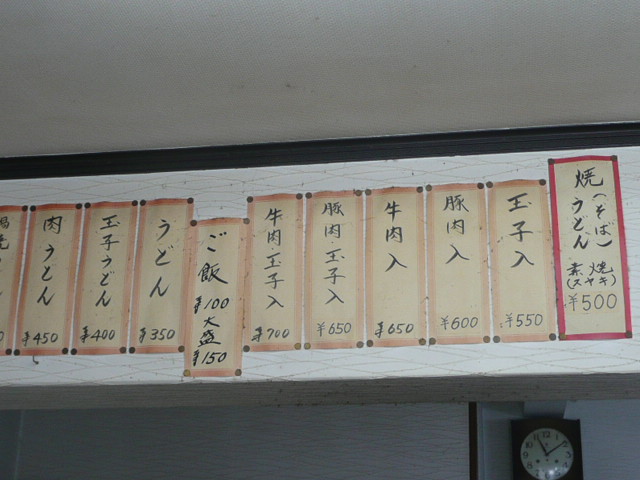 焼うどん
(そば)
素焼
(スヤキ)
¥500
玉子入
¥550
豚肉入
¥600
牛肉入
¥650
豚肉・玉子入
¥650
牛肉・玉子入
¥700
ご飯
¥100
大盛
¥150
うどん
¥350
玉子うどん
¥400
肉うどん
¥450